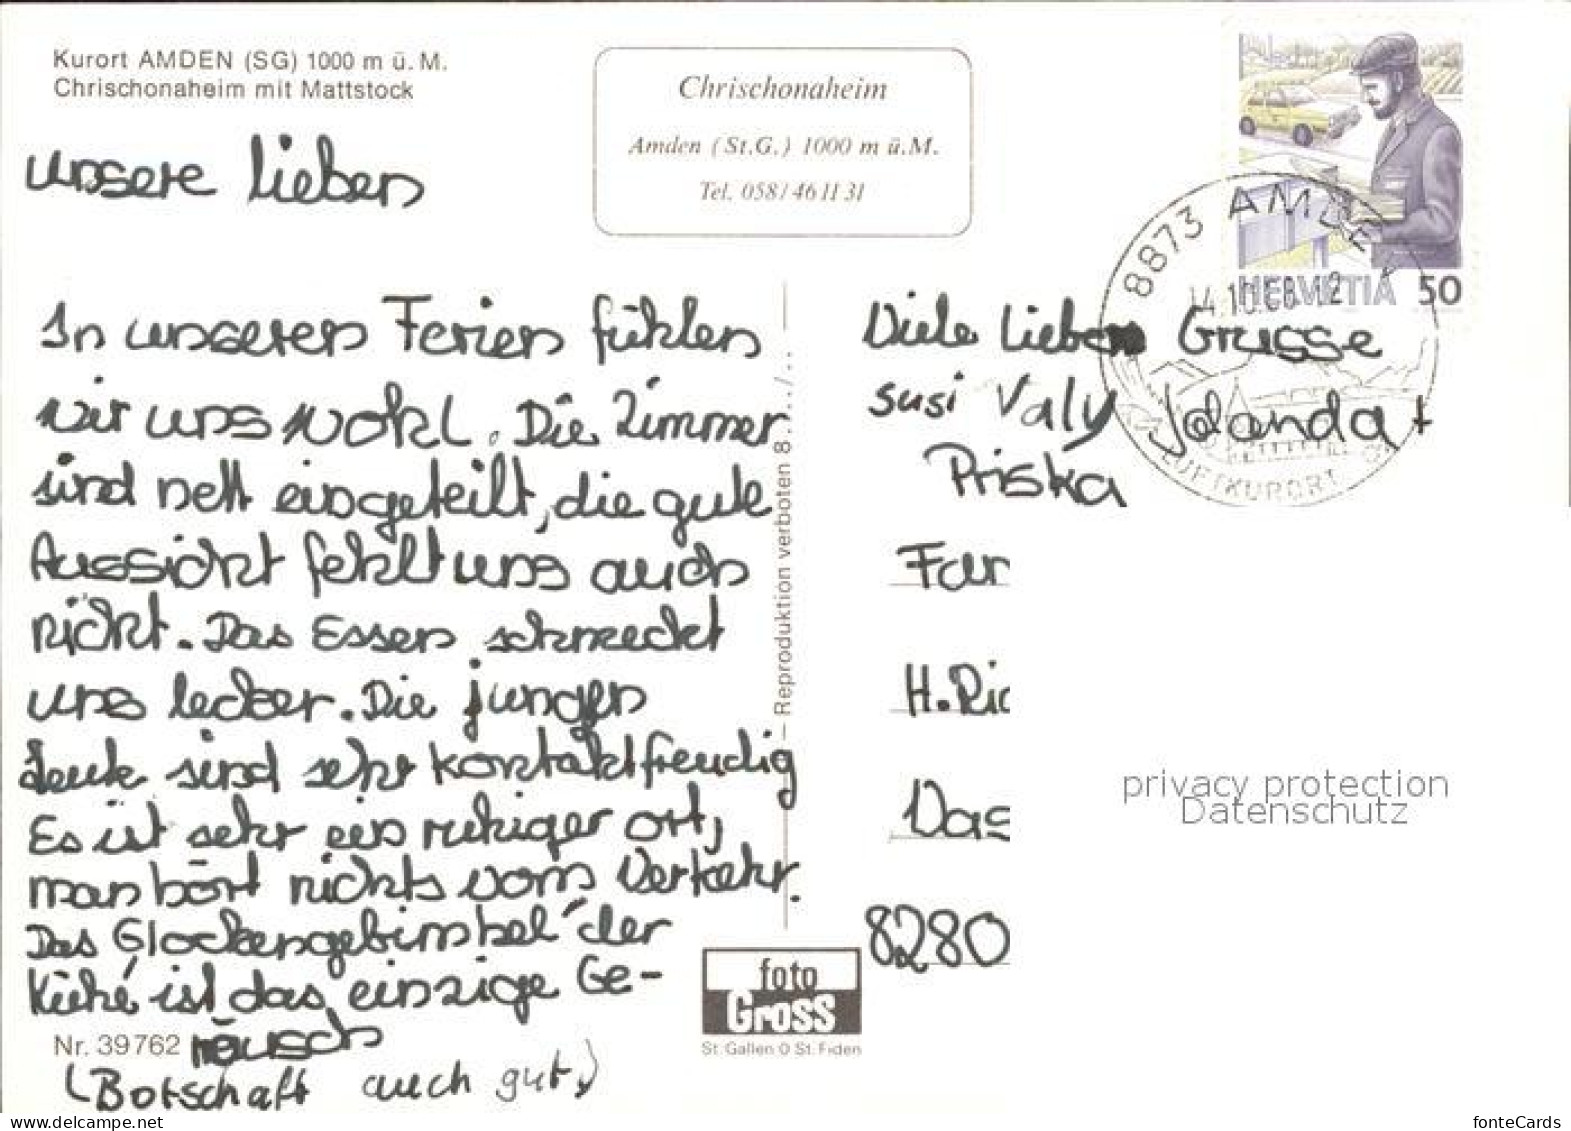 Kurort AMDEN (SG) 1000 m ü. M.
Chrischonaheim mit Mattstock
Chrischonaheim
Amden (St.G.) 1000 m ü.M.
Tel. 058/46 11 31
HELVETIA 50
8873 AMDEN
LUFTKURORT
unsere lieben
In unseren Ferien fühlen
wir uns wohl. Die Zimmer
sind nett eingeteilt, die gute
Aussicht fehlt uns auch
nicht. Das Essen schmeckt
uns lecker. Die jungen
Leute sind sehr kontaktfreudig
Es ist sehr ein ruhiger ort,
man hört nichts vom Verkehr.
Das Glockengebimbel der
Kühe ist das einzige Ge-
räusch
(Botschaft auch gut.)
Nr. 39762
Reproduktion verboten 8
foto
Gross
St. Gallen O St. Fiden
Viele lieben Grüsse
susi Valy Jolanda +
Priska
Fam
H. Ric
Das
8280
privacy protection
Datenschutz
www.delcampe.net
fonteCards